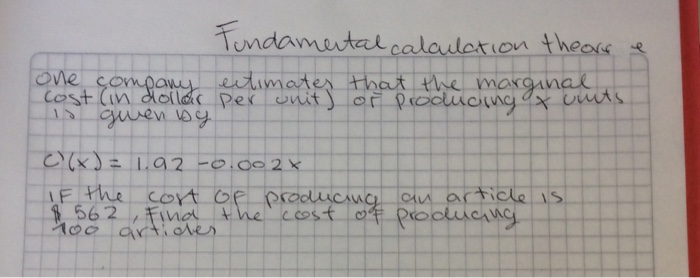 Fundamental calculation theore e
one company estimates that the marginal
cost (in dollar per unit) of producing x units
is given by
C'(x) = 1.92 - 0.002x
IF the cost OF producing an article is
$ 562, Find the cost of producing
100 articles